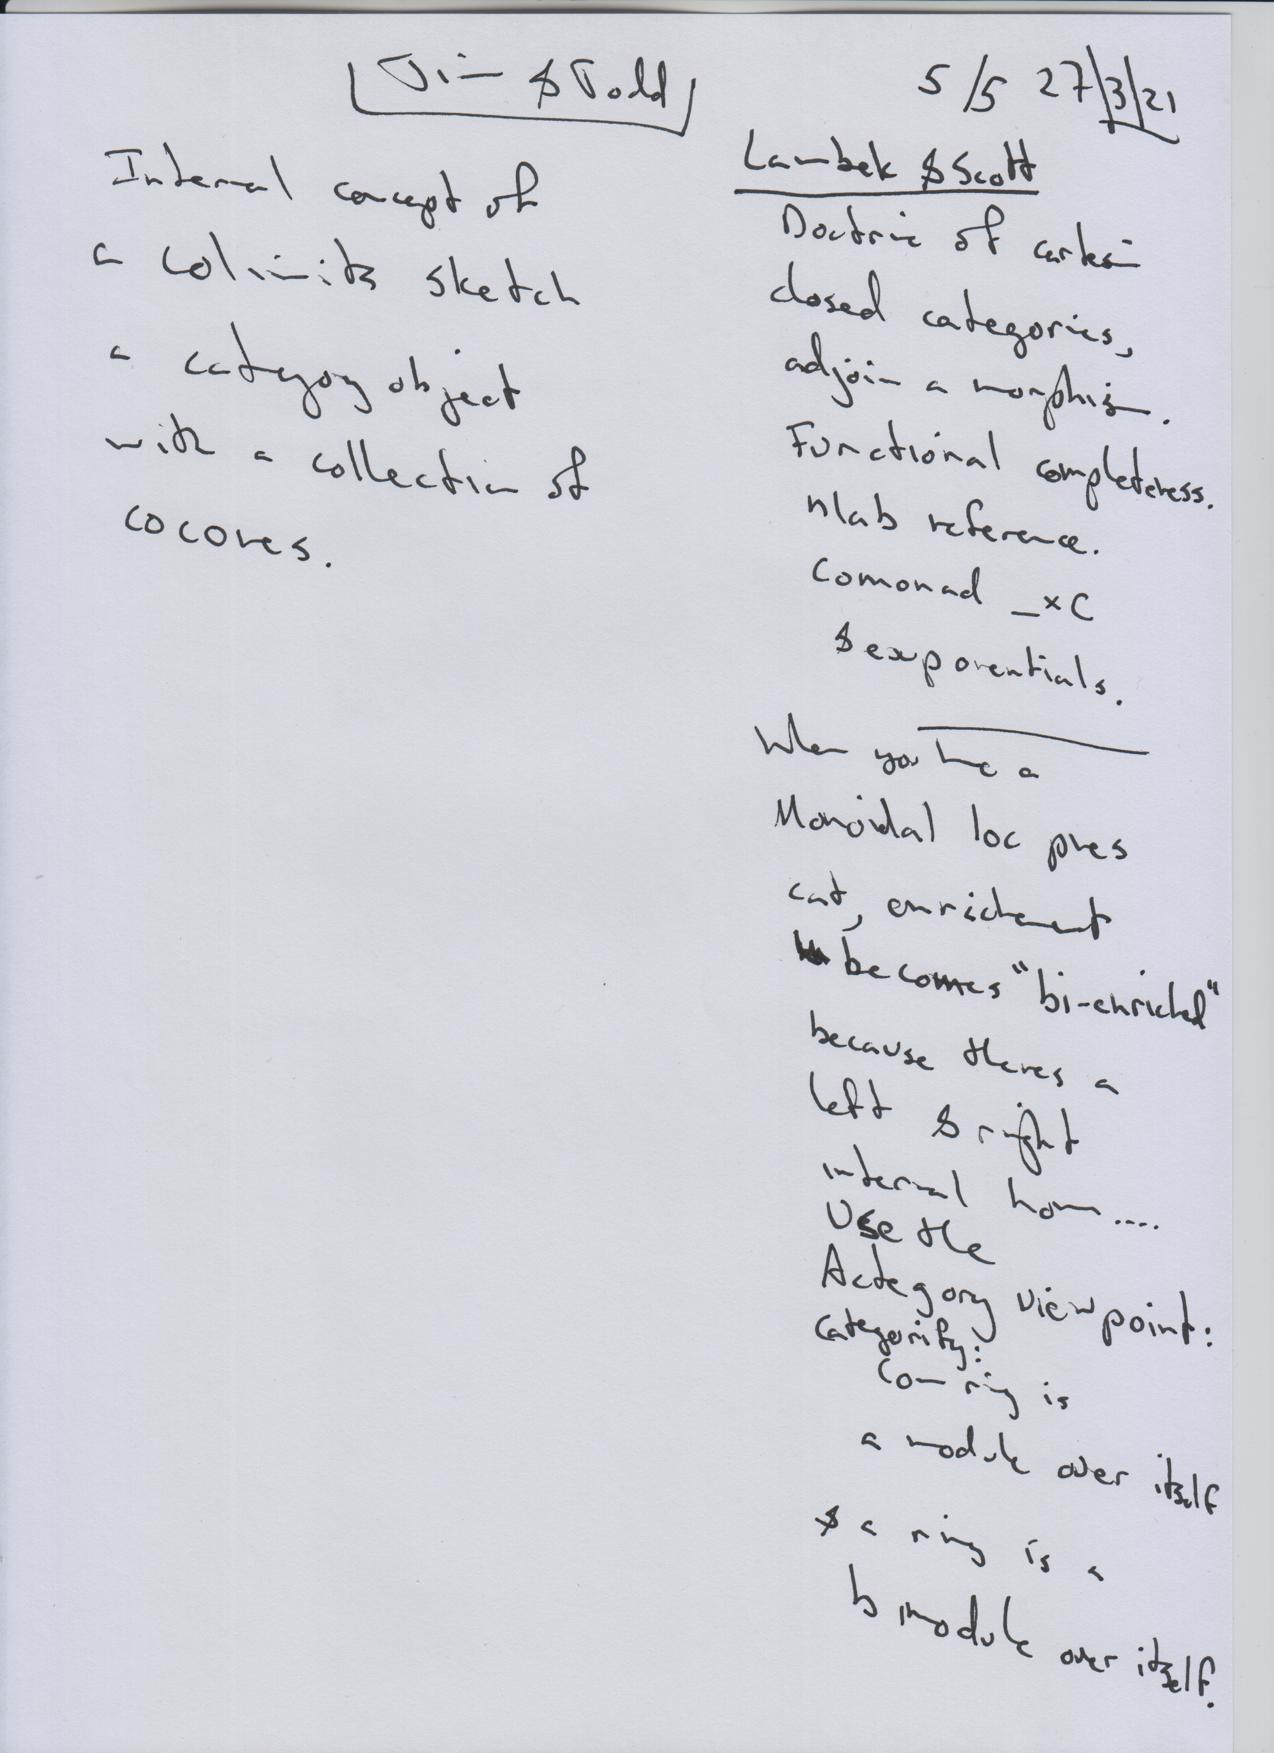 Jim & Todd
5/5 27/3/21
Internal concept of
a colimits sketch
a category object
with a collection of
cocones.
Lambek & Scott
Doctrine of cartesian
closed categories,
adjoin a morphism.
Functional completeness.
nlab reference.
Comonad _×C
& exponentials.
When you have a
Monoidal loc pres
cat, enrichment
becomes "bi-enriched"
because theres a
left & right
internal hom....
Use the
Actegory viewpoint:
categorify:
Com ring is
a module over itself
& a ring is a
bimodule over itself.